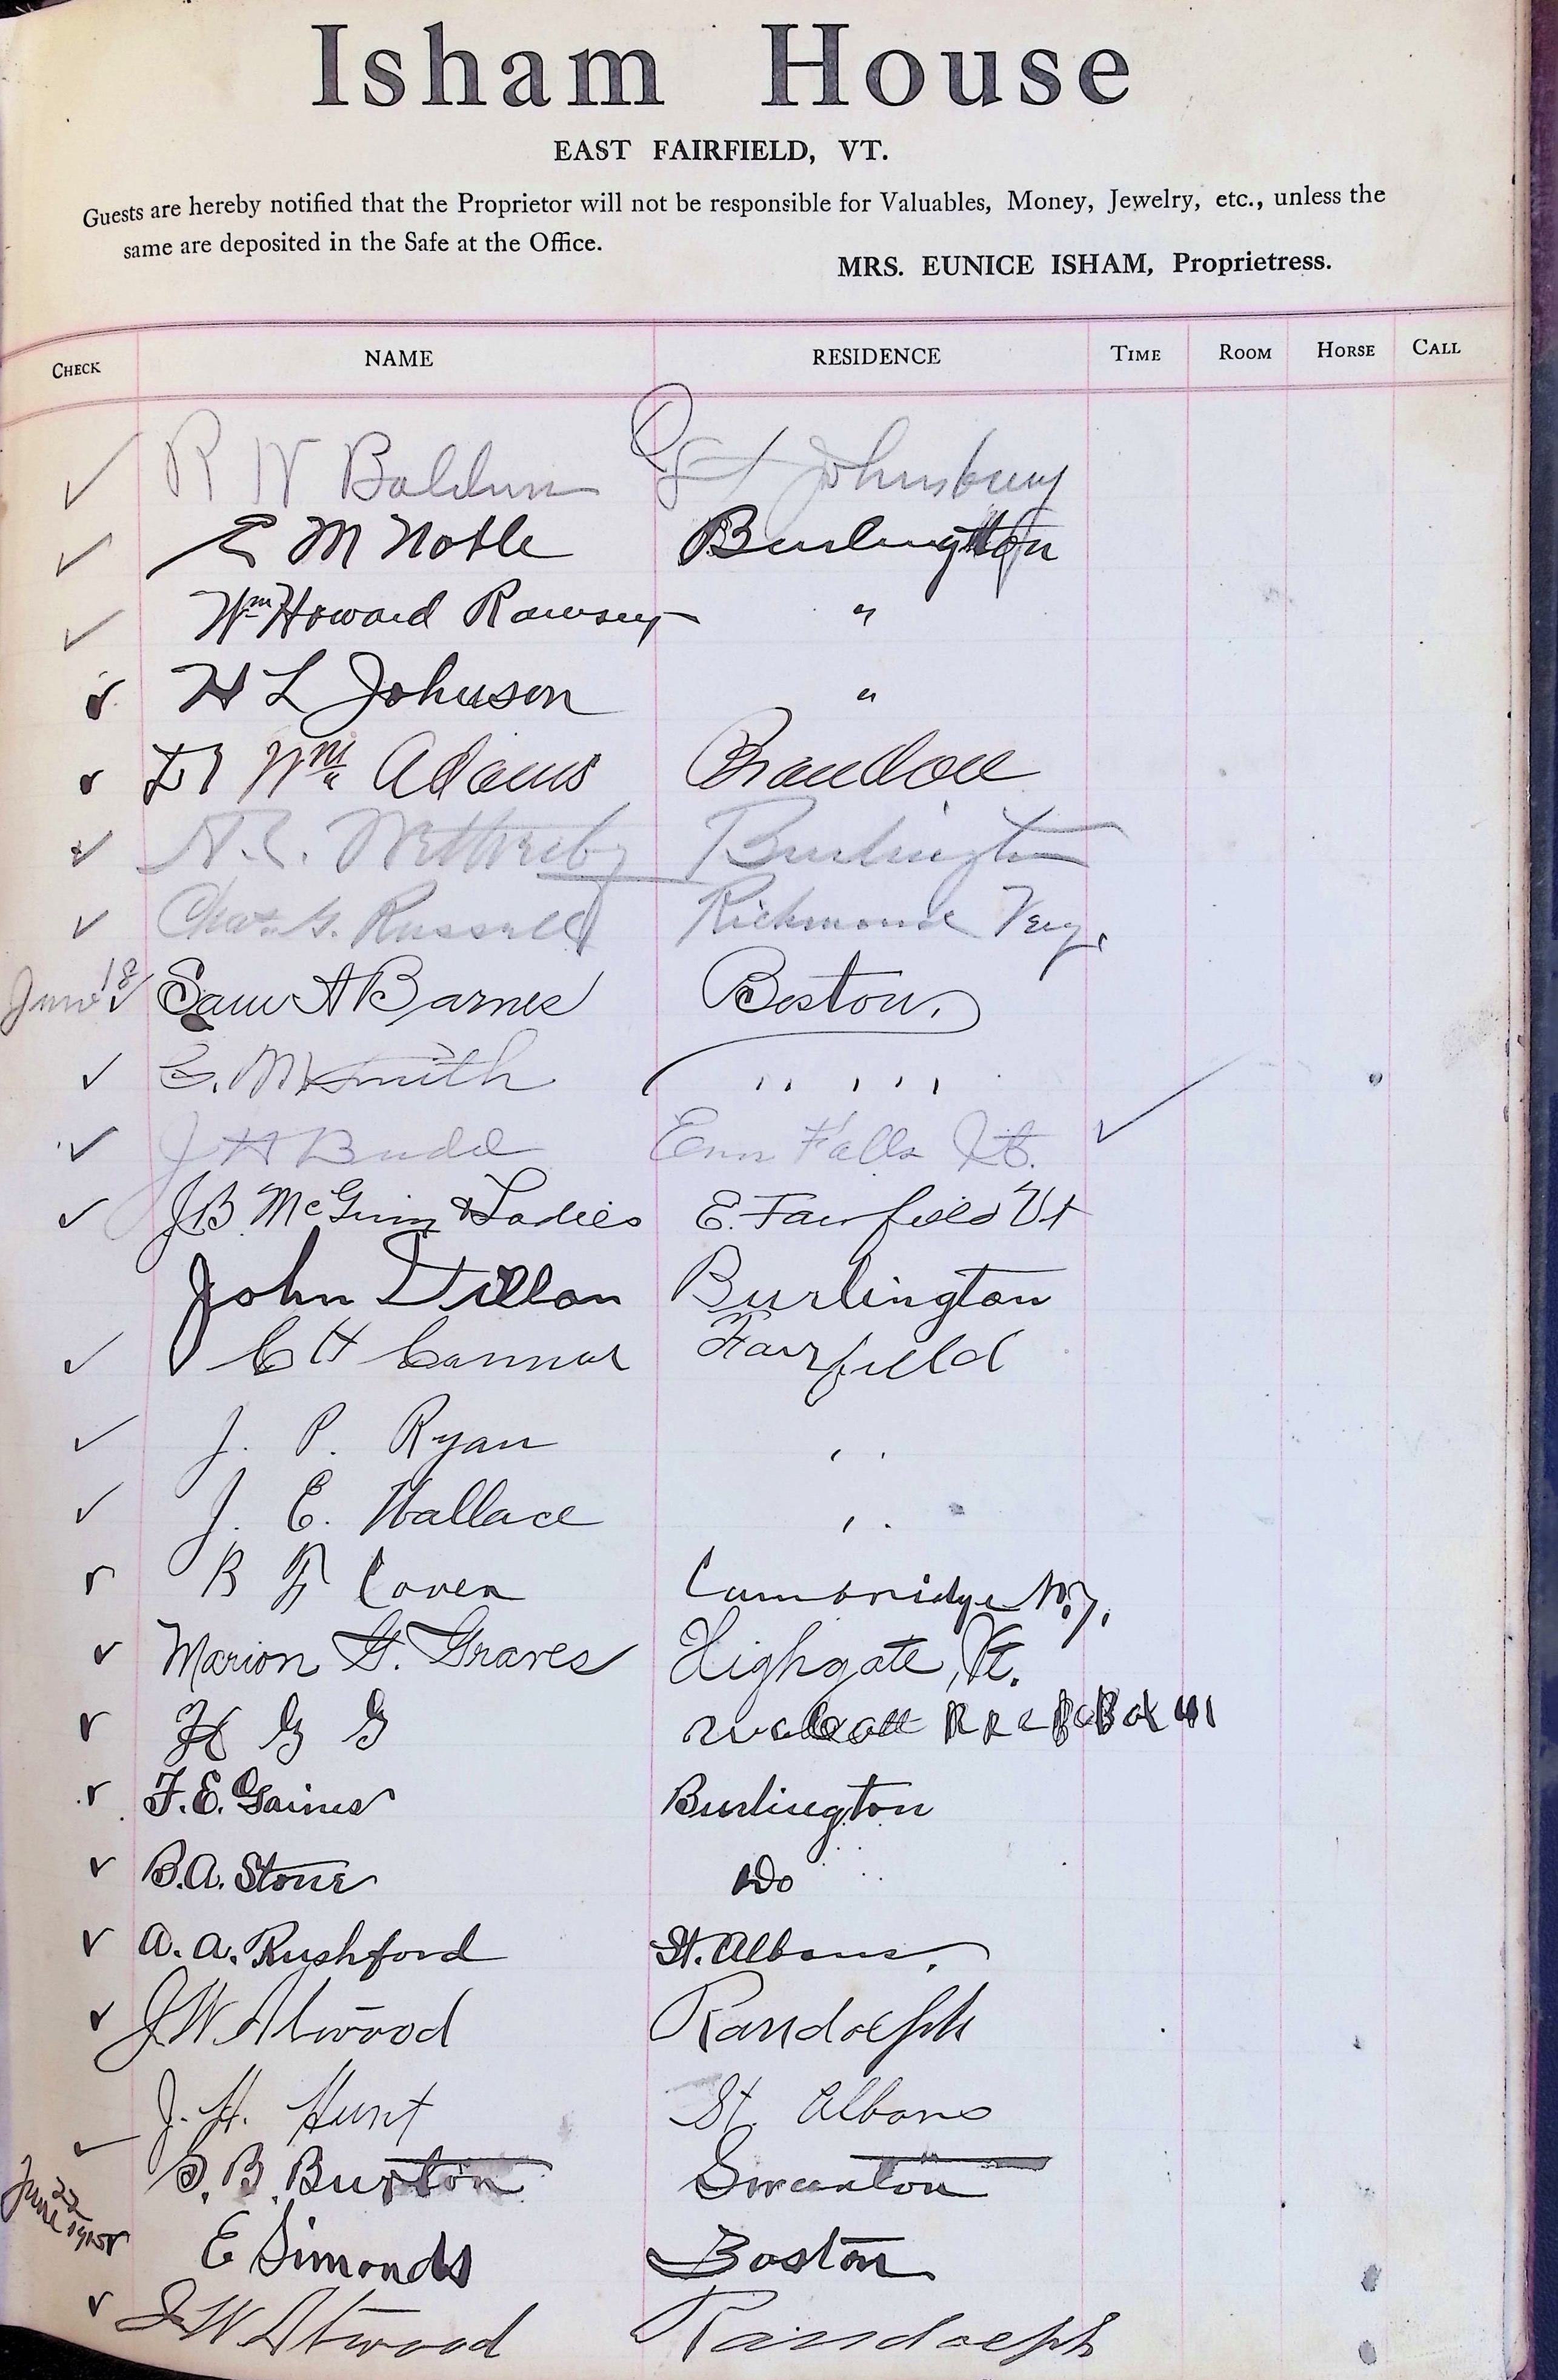 Isham House
EAST FAIRFIELD, VT.
Guests are hereby notified that the Proprietor will not be responsible for Valuables, Money, Jewelry, etc., unless the
same are deposited in the Safe at the Office.
MRS. EUNICE ISHAM, Proprietress.
CHECK NAME RESIDENCE TIME ROOM HORSE CALL
✓ R W Baldwin St Johnsbury
✓ E M Noble Burlington
✓ Wm Howard Ramsey "
✓ H L Johnson "
✓ Dr Wm Adams Brandon
✓ Burlington
✓ Chas. G. Russell Richmond
June 18 ✓ Sam A Barnes Boston.
✓ Smith " " "
✓ J H Budd Falls ✓
✓ J B McGinn & Ladies E. Fairfield Vt
John Dillon Burlington
✓ C H Connor Fairfield
✓ J. P. Ryan "
✓ J. E. Wallace "
✓ B F Coven Cambridge N.Y.
✓ Marion G. Graves Highgate, Vt.
✓ H G G Wolcott R R 2
✓ F. E. Gaines Burlington
✓ B. A. Stone Do
✓ A. A. Rushford St. Albans.
✓ J W Atwood Randolph
J. H. Hunt St. Albans
✓ S. B. Burton Swanton
June 22 1915 ✓ E Simonds Boston
✓ J W Atwood Randolph